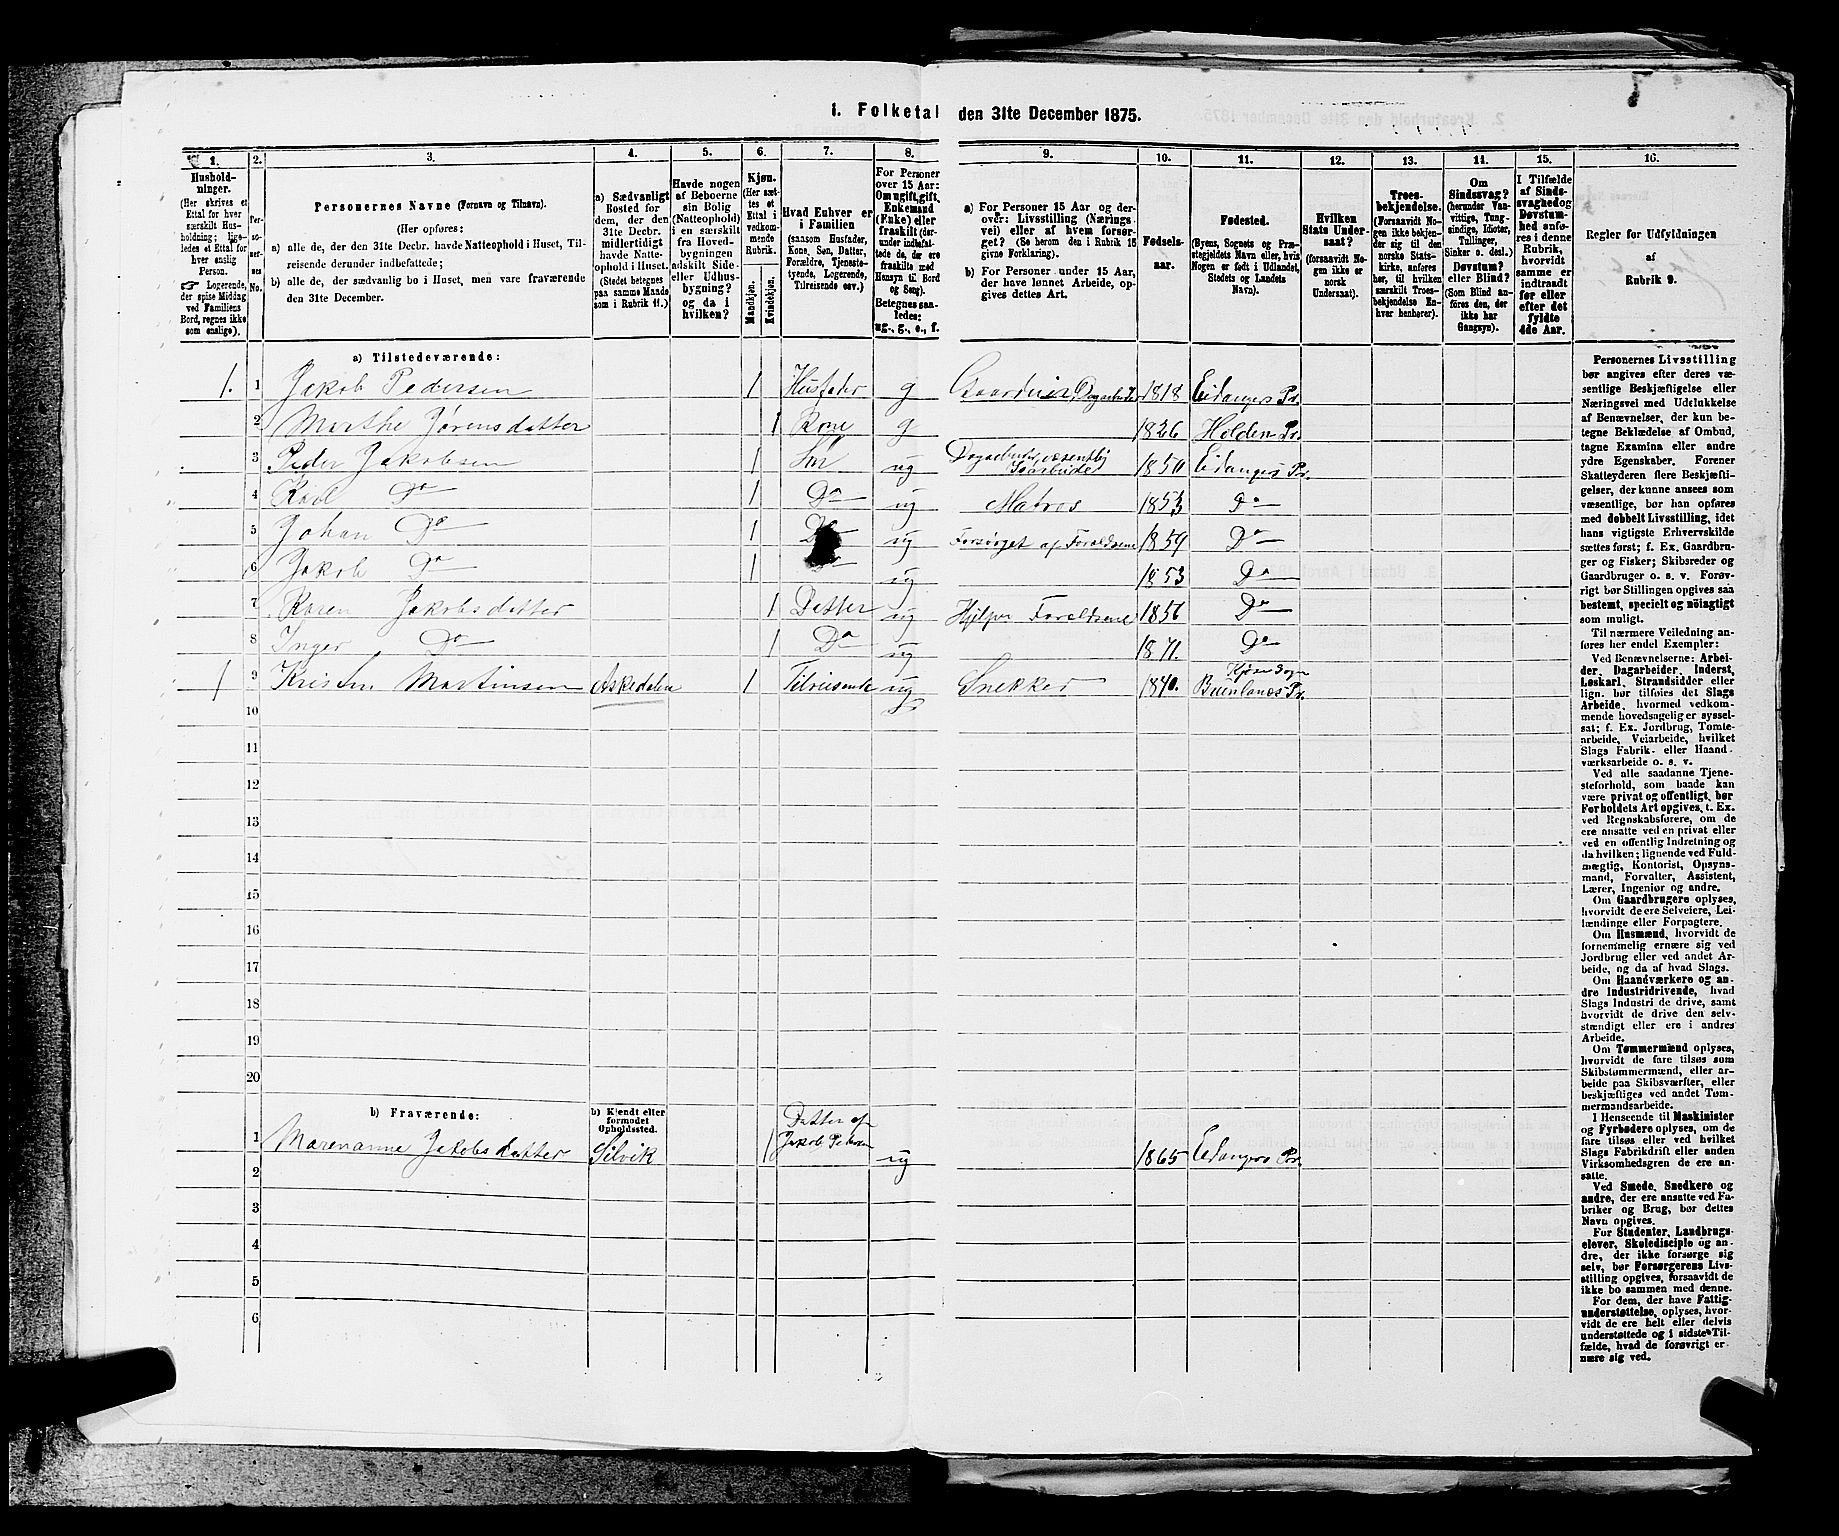 1. Folketal den 31te December 1875.
1.
2.
3.
4.
5.
6.
7.
8.
9.
10.
11.
12.
13.
14.
15.
16.
Husholdninger.
(Her skrives et Ettal for hver særskilt Husholdning; ligeledes et Ettal for hver enslig Person.
☞ Logerende, der spise Middag ved Familiens Bord, regnes ikke som enslige).
Personernes No.
Personernes Navne (Fornavn og Tilnavn).
(Her opføres:
a) alle de, der den 31te Decbr. havde Natteophold i Huset, Tilreisende derunder indbefattede;
b) alle de, der sædvanlig bo i Huset, men vare fraværende den 31te December.
a) Sædvanligt Bosted for dem, der den 31te Decbr. midlertidigt havde Natteophold i Huset.
(Stedet betegnes paa samme Maade som i Rubrik 11.)
Havde nogen af Beboerne sin Bolig (Natteophold) i en særskilt fra Hovedbygningen adskilt Side- eller Udhusbygning? og da i hvilken?
Kjøn.
(Her sættes et Ettal i vedkommende Rubrik.
Mandkjøn.
Kvindekjøn.
Hvad Enhver er i Familien
(saasom Husfader, Kone, Søn, Datter, Forældre, Tjenestetyende, Logerende, Tilreisende osv.)
For Personer over 15 Aar: Om ugift, gift, Enkemand (Enke) eller fraskilt (derunder indbefattede de, der ere fraskilte med Hensyn til Bord og Seng).
Betegnes saaledes: ug., g., e., f.
a) For Personer 15 Aar og derover: Livsstilling (Næringsvei) eller af hvem forsørget? (Se herom den i Rubrik 16 givne Forklaring).
b) For Personer under 15 Aar, der have lønnet Arbeide, opgives dettes Art.
Fødselsaar.
Fødested.
(Byens, Sognets og Præstegjeldets Navn eller, hvis Nogen er født i Udlandet, Stedets og Landets Navn).
Hvilken Stats Undersaat?
(forsaavidt Nogen ikke er norsk Undersaat).
Troesbekjendelse.
(Forsaavidt Nogen ikke bekjender sig til den norske Statskirke, anføres her, til hvilken særskilt Troesbekjendelse Enhver henhører).
Om Sindssvag?
(herunder Vanvittige, Tungsindige, Idioter, Tullinger, Sinker o. desl.)
Døvstum? eller Blind?
(Som Blind anføres den, der ikke har Gangsyn).
I Tilfælde af Sindssvaghed og Døvstumhed anføres i denne Rubrik, hvorvidt samme er indtraadt før eller efter det fyldte 4de Aar.
Regler for Udfyldningen af Rubrik 9.
a) Tilstedeværende:
1. 1 Jakob Pedersen 1 Husfader g Gaardeier Dagarbeider 1818 Eidangers Pr.
2 Marthe Jørensdatter 1 Kone g 1826 Holden Pr.
3 Peder Jakobsen 1 Søn ug 1850 Eidangers Pr.
4 Karl Do 1 Do ug Matros 1853 Do
5 Johan Do 1 ug Forsørget af Forældrene 1859 Do
6 Jakob Do 1 ug Do
7 Karen Jakobsdatter 1 Datter ug Hjelper Forældrene 1856 Do
8 Inger Do 1 Do ug 1871. Do
1 9 Kristen Martinsen Askedalen 1 Tilreisende ug Snekker 1840. Pr.
10
11
12
13
14
15
16
17
18
19
20
b) Fraværende:
b) Kjendt eller formodet Opholdssted.
1 Marenanne Jakobsdatter Silvik 1 Datter af Jakob Pedersen ug 1865 Eidangers Pr.
2
3
4
5
6
Personernes Livsstilling bør angives efter deres væsentlige Beskjæftigelse eller Næringsvei med Udelukkelse af Benævnelser, der kun betegne Beklædelse af Ombud, tagne Examina eller andre ydre Egenskaber. Forener Skatteyderen flere Beskjæftigelser, der kunne ansees som væsentlige, bør han opføres med dobbelt Livsstilling, idet hans vigtigste Erhvervskilde sættes først; f. Ex. Gaardbruger og Fisker; Skibsreder og Gaardbruger o. s. v. Forøvrigt bør Stillingen opgives saa bestemt, specielt og nöiagtigt som muligt.
Til nærmere Veiledning anføres her endel Exempler:
Ved Benævnelserne: Arbeider, Dagarbeider, Inderst, Løskarl, Strandsidder eller lign. bør tilføies det Slags Arbeide, hvormed vedkommende hovedsagelig er sysselsat; f. Ex. Jordbrug, Tomtearbeide, Veiarbeide, hvilket Slags Fabrik- eller Haandværksarbeide o. s. v.
Ved alle saadanne Tjenesteforhold, som baade kan være privat og offentligt, bør Forholdets Art opgives, t. Ex. ved Regnskabsførere, om de ere ansatte ved en privat eller ved en offentlig Indretning og da hvilken; lignende ved Fuldmægtig, Kontorist, Opsynsmand, Forvalter, Assistent, Lærer, Ingeniør og andre.
Om Gaardbrugere oplyses, hvorvidt de ere Selveiere, Leilændinge eller Forpagtere.
Om Husmænd, hvorvidt de fornemmelig ernære sig ved Jordbrug eller ved andet Arbeide, og da af hvad Slags.
Om Haandværkere og andre Industridrivende, hvad Slags Industri de drive, samt hvorvidt de drive den selvstændigt eller ere i andres Arbeide.
Om Tømmermænd oplyses, hvorvidt de fare tilsøs som Skibstømmermænd, eller arbeide paa Skibsværfter, eller beskjæftiges ved andet Tømmermandsarbeide.
I Henseende til Maskinister og Fyrbødere oplyses, om de fare tilsøs eller ved hvilket Slags Fabrikdrift eller anden Virksomhedsgren de ere ansatte.
Ved Smede, Snedkere og andre, der ere ansatte ved Fabriker og Brug, bør dettes Navn opgives.
For Studenter, Landbrugselever, Skoledisciple og andre, der ikke forsørge sig selv, bør Forsørgerens Livsstilling opgives, forsaavidt de ikke bo sammen med denne.
For dem, der have Fattigunderstøttelse, oplyses, hvorvidt de ere helt eller delvis understøttede og i sidste Tilfælde, hvad de forøvrigt ernære sig ved.